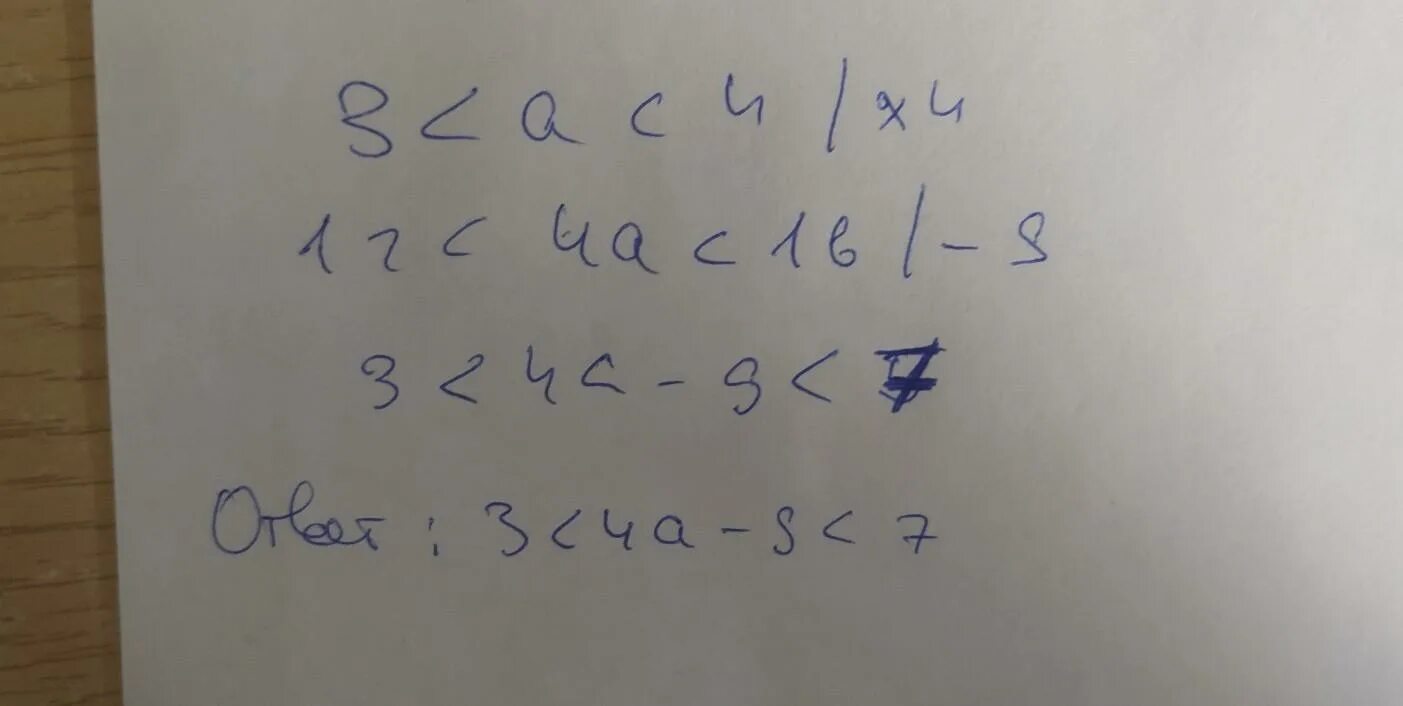 3 < a < 4 / × 4
12 < 4a < 16 / - 9
3 < 4a - 9 < 7
Ответ : 3 < 4a - 9 < 7